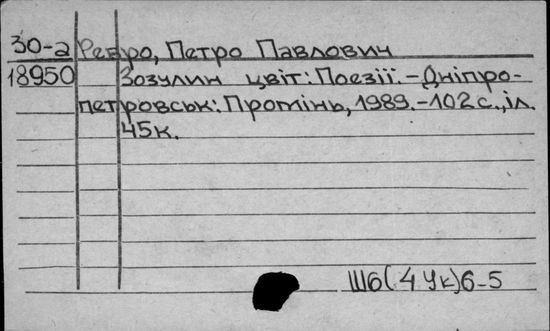 30-а Ребро, Петро Павлович
18950 Зозулин цвіт: Поезії. – Дніпро-
петровськ: Промінь, 1989. – 102 с., іл.
45к.
Ш6(4Ук)6-5